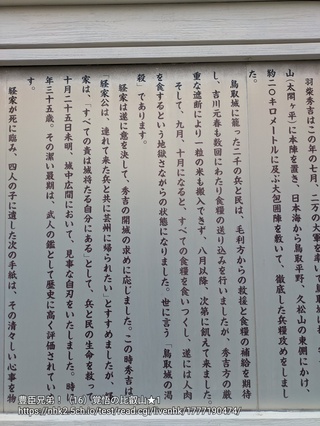 羽柴秀吉はこの年の七月、二万の大軍を率いて鳥取城に
山(太閤ヶ平)に本陣を置き、日本海から鳥取平野、久松山の東側にかけ、
約二〇キロメートルに及ぶ大包囲陣を敷いて、徹底した兵糧攻めをしまし
た。
鳥取城に籠った二千の兵と民は、毛利方からの救援と食糧の補給を期待
し、吉川元春も数回にわたり食糧の送り込みを行いましたが、秀吉方の厳
重な遮断により一粒の米も搬入できず、八月以降、次第に飢えて来ました。
そして、九月、十月になると、すべての食糧を食いつくし、遂には人肉
を食するという地獄さながらの状態になりました。世に言う「鳥取城の渇
殺」であります。
経家は遂に意を決して、秀吉の開城の求めに応じました。この時秀吉は、
経家公は、連れて来た兵と共に芸州に帰られたい」とすすめましたが、
家は、「すべての責は城将たる自分にある」として、兵と民の生命を救っ
十月二十五日未明、城中広間において、見事な自刃をいたしました。時に
年三十五歳。その潔い最期は、武人の鑑として歴史に高く評価されていま
す。
経家が死に臨み、四人の子に遺した次の手紙は、その清々しい心事を物
豊臣兄弟!(16)「覚悟の比叡山」★1
https://nhk2.5ch.io/test/read.cgi/livenhk/1777190474/